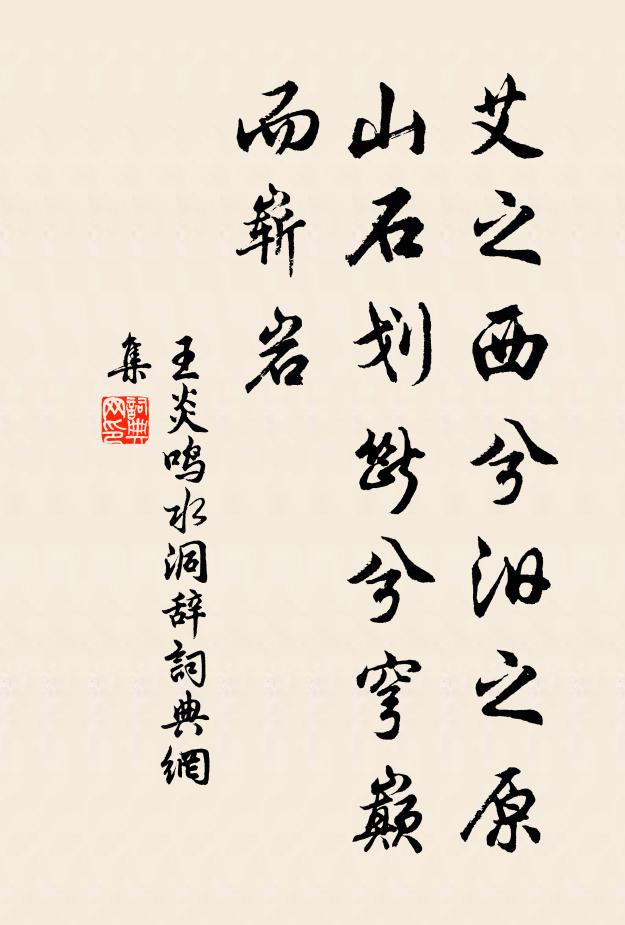 艾之西兮汨之原
山石划斷兮穹巔
而嶄岩
王炎鸣水洞辞詞典網
集
詞典网印